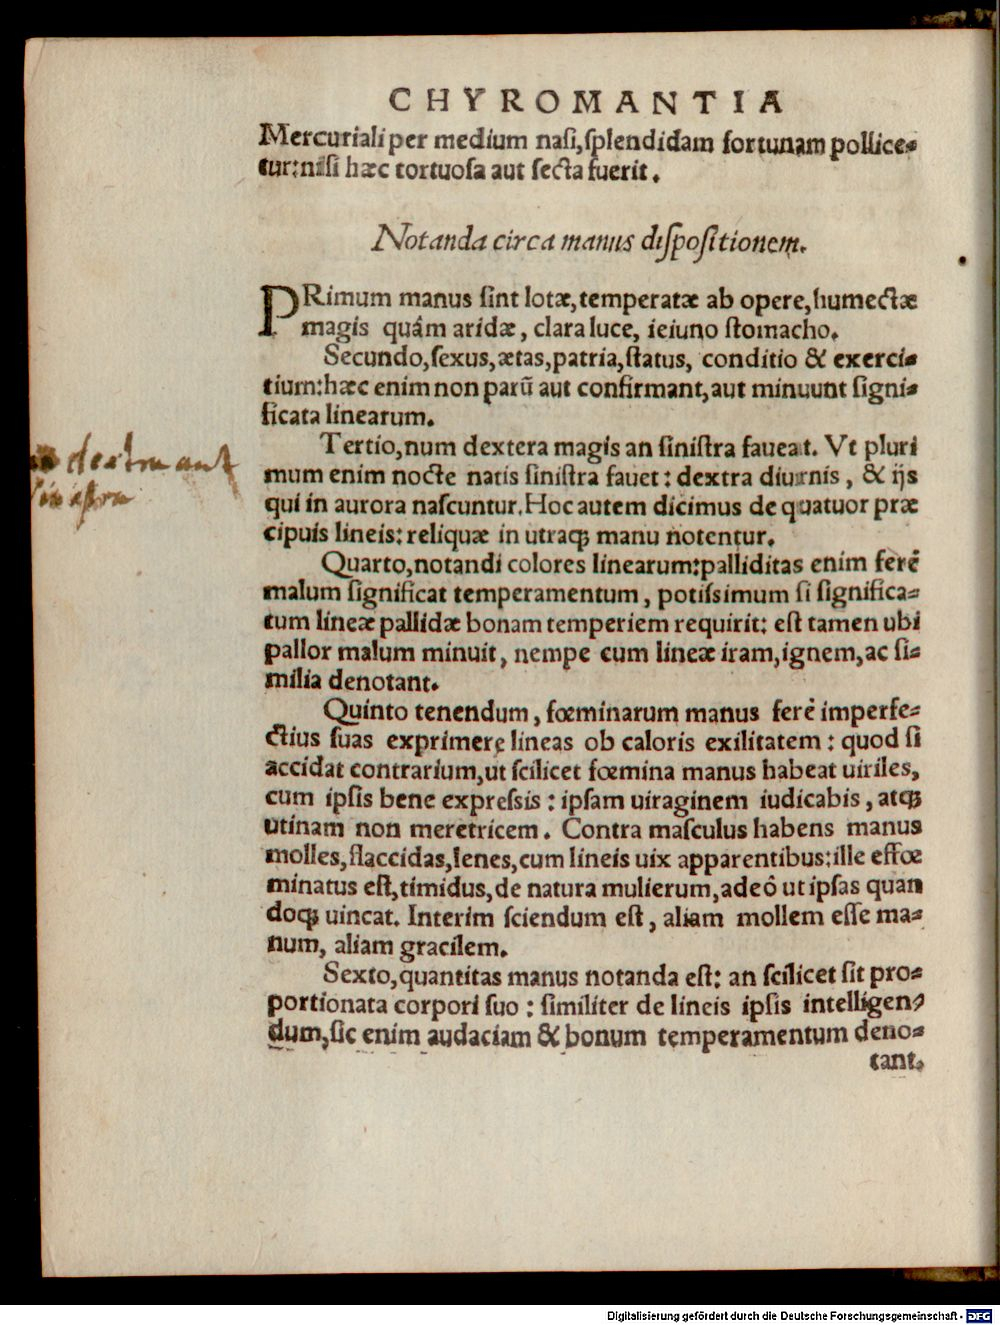 CHYROMANTIA
Mercuriali per medium nasi, splendidam fortunam pollice⸗
tur: nisi hæc tortuosa aut secta fuerit.
Notanda circa manus dispositionem.
PRimum manus sint lotæ, temperatæ ab opere, humectæ
magis quâm aridæ, clara luce, ieiuno stomacho.
Secundo, sexus, ætas, patria, status, conditio & exerci⸗
tium: hæc enim non parũ aut confirmant, aut minuunt signi⸗
ficata linearum.
Tertio, num dextera magis an sinistra faueat. Vt pluri
mum enim nocte natis sinistra fauet: dextra diurnis, & ijs
qui in aurora nascuntur. Hoc autem dicimus de quatuor præ
cipuis lineis: reliquæ in utraqꝫ manu notentur.
dextra aut
sinistra
Quarto, notandi colores linearum: palliditas enim ferè
malum significat temperamentum, potissimum si significa⸗
tum lineæ pallidæ bonam temperiem requirit: est tamen ubi
pallor malum minuit, nempe cum lineæ iram, ignem, ac si⸗
milia denotant.
Quinto tenendum, fœminarum manus ferè imperfe⸗
ctius suas exprimere lineas ob caloris exilitatem: quod si
accidat contrarium, ut scilicet fœmina manus habeat uiriles,
cum ipsis bene expressis: ipsam uiraginem iudicabis, atqꝫ
utinam non meretricem. Contra masculus habens manus
molles, flaccidas, lenes, cum lineis uix apparentibus: ille effœ
minatus est, timidus, de natura mulierum, adeô ut ipsas quan
doqꝫ uincat. Interim sciendum est, aliam mollem esse ma⸗
num, aliam gracilem.
Sexto, quantitas manus notanda est: an scilicet sit pro⸗
portionata corpori suo: similiter de lineis ipsis intelligen⸗
dum, sic enim audaciam & bonum temperamentum deno⸗
tant.
Digitalisierung gefördert durch die Deutsche Forschungsgemeinschaft - DFG